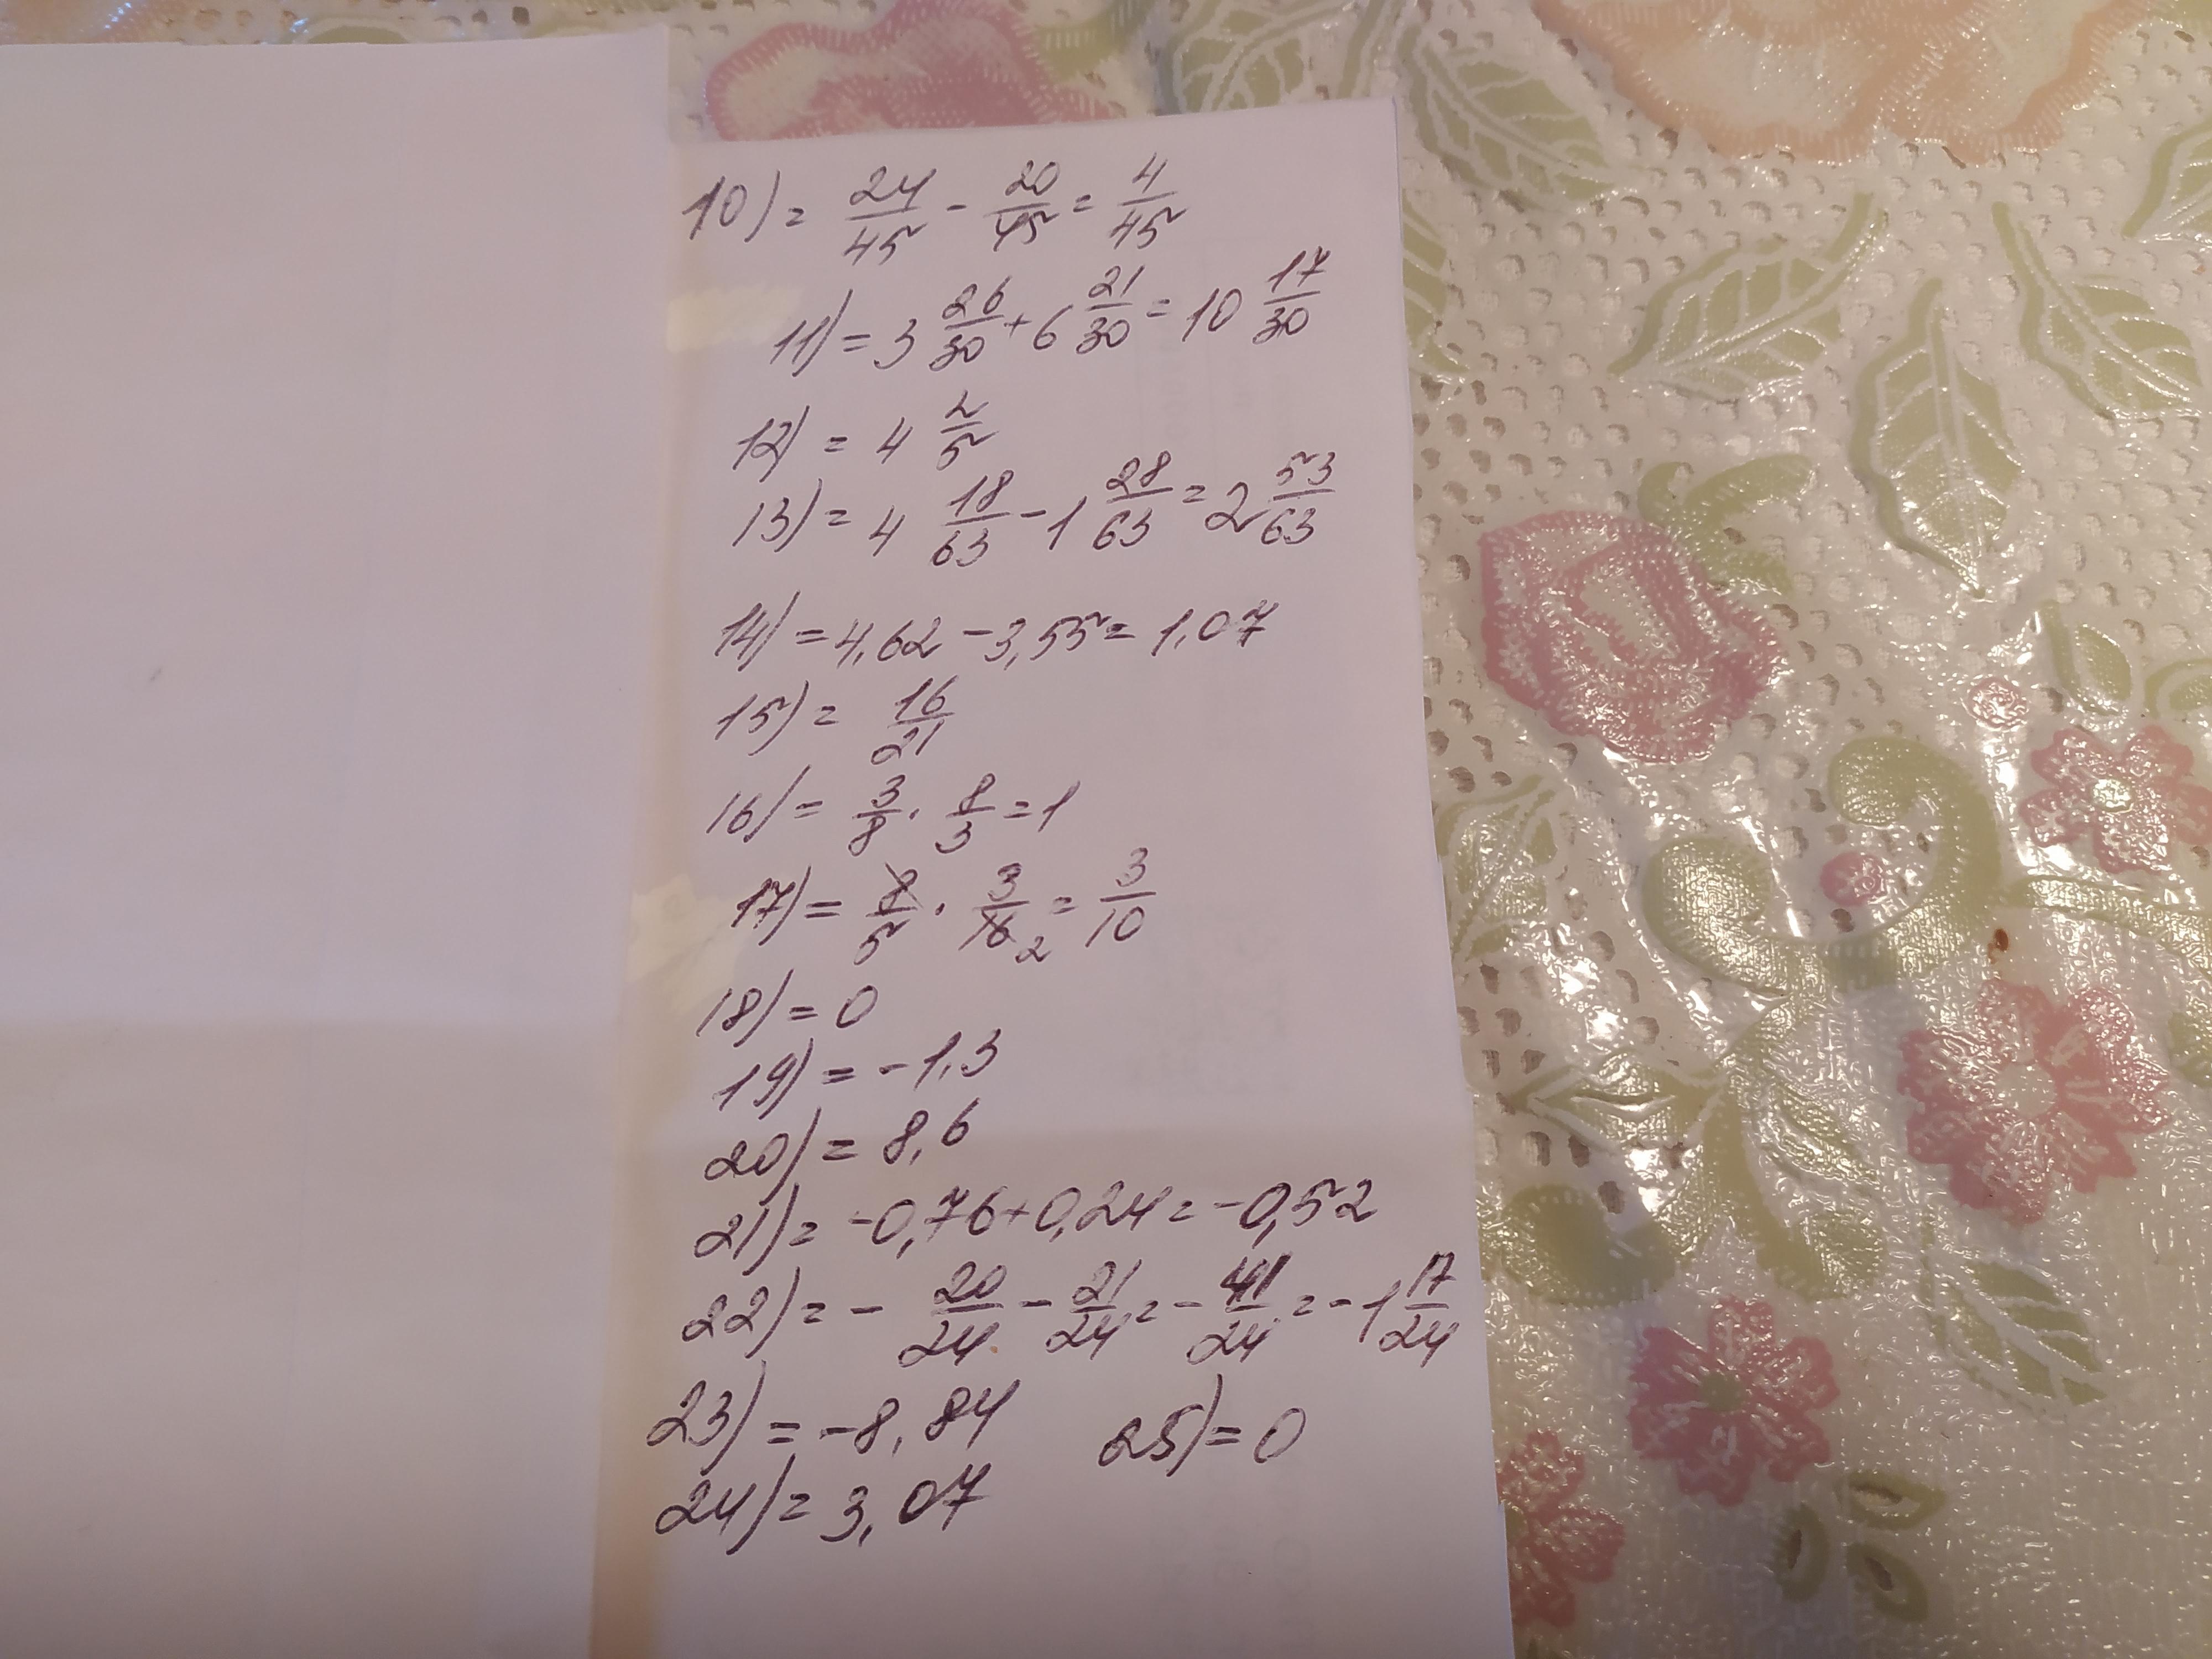 10) = 24/45 - 20/45 = 4/45
11) = 3 26/30 + 6 21/30 = 10 17/30
12) = 4 2/5
13) = 4 18/63 - 1 28/63 = 2 53/63
14) = 4,62 - 3,55 = 1,07
15) = 16/21
16) = 3/8 · 8/3 = 1
17) = 8/5 · 3/16 2 = 3/10
18) = 0
19) = -1,3
20) = 8,6
21) = -0,76 + 0,24 = -0,52
22) = - 20/24 - 21/24 = - 41/24 = -1 17/24
23) = -8,84 25) = 0
24) = 3,07